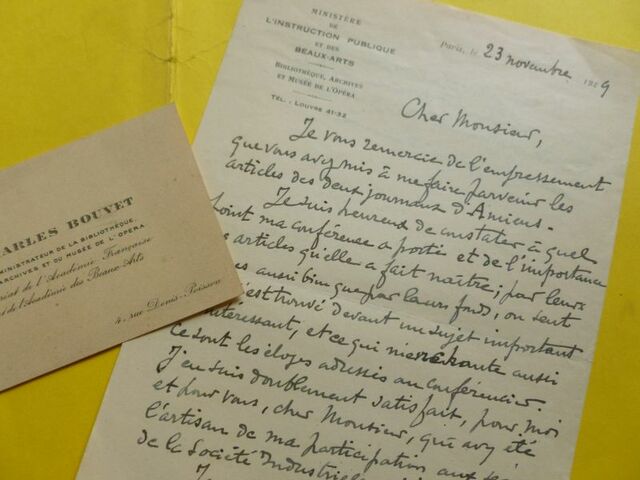 MINISTÈRE
DE
L'INSTRUCTION PUBLIQUE
ET DES
BEAUX-ARTS
BIBLIOTHÈQUE, ARCHIVES
ET MUSÉE DE L'OPÉRA
TÉL. - LOUVRE 41-32
Paris, le 23 novembre 1929
Cher Monsieur,
Je vous remercie de l'empressement
que vous avez mis à me faire parvenir les
articles des deux journaux d'Amiens.
Je suis heureux de constater à quel
point ma conférence a porté et de l'importance
articles qu'elle a fait naître; par leurs
aussi bien que par leurs fond, on sent
s'est trouvé devant un sujet important
intéressant, et ce qui aussi
ce sont les éloges adressés au conférencier.
J'en suis doublement satisfait, pour moi
et pour vous, cher Monsieur, qui avez été
l'artisan de ma participation aux
de la Société Industrielle
ARLES BOUVET
MINISTRATEUR DE LA BIBLIOTHÈQUE,
ARCHIVES ET DU MUSÉE DE L'OPÉRA
de l'Académie Française
de l'Académie des Beaux-Arts
4, rue Denis-Poisson